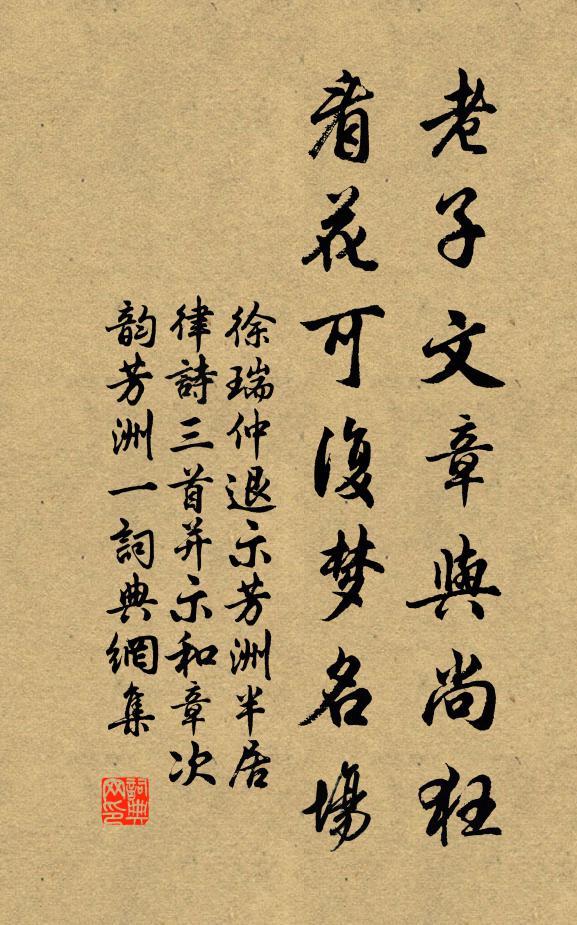 老子文章興尚狂
看花可復梦名場
徐瑞仲退示芳洲半居
律詩三首并示和章次
韵芳洲一詞典網集
詞典网印